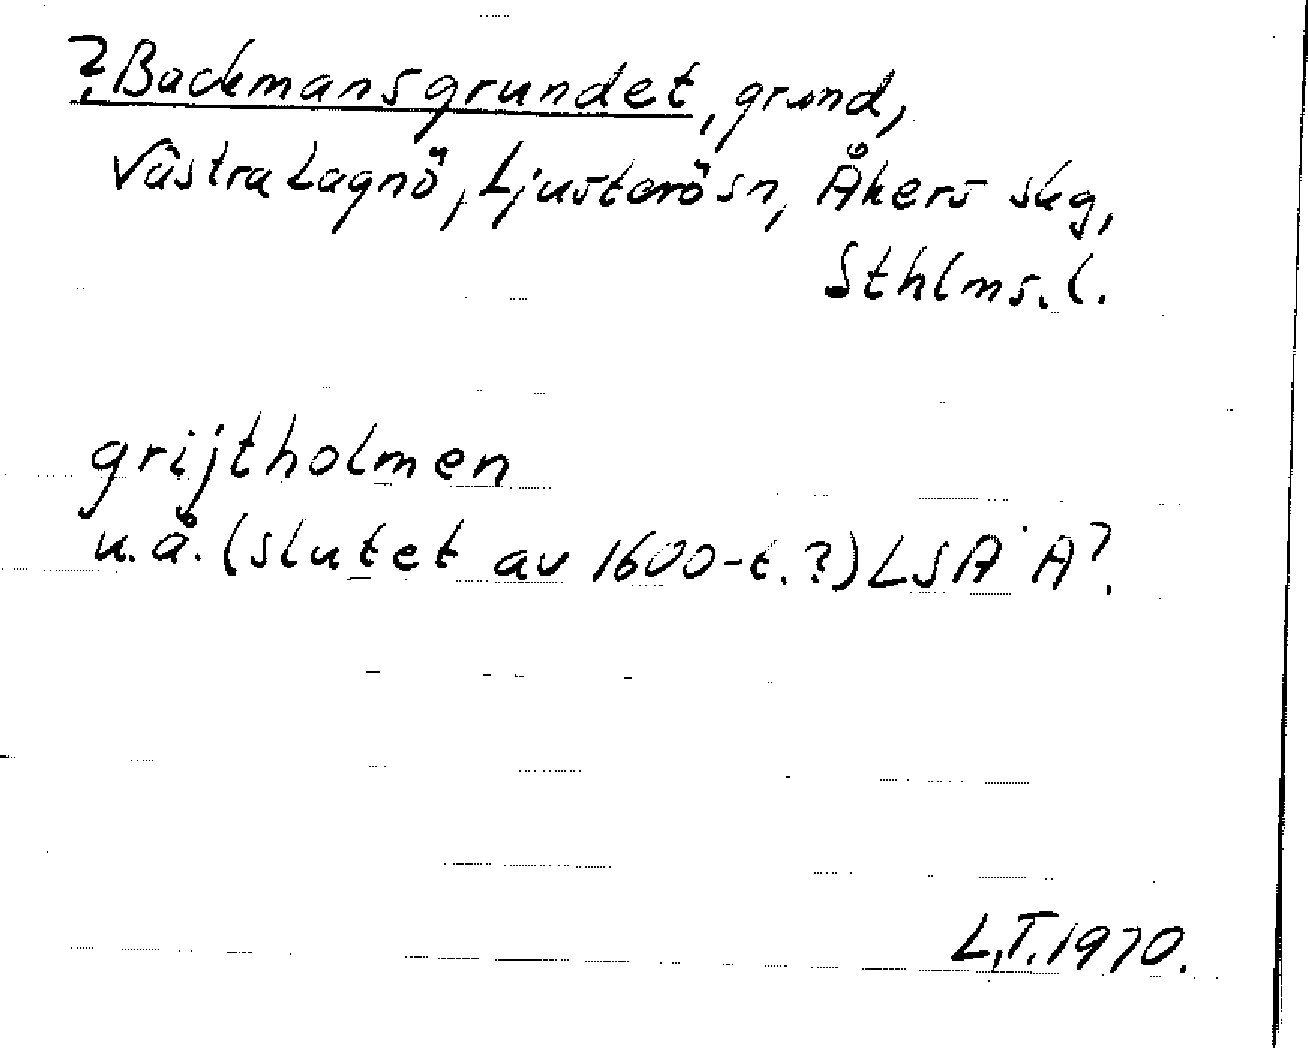 ?Backmansgrundet, grund,
Västra Lagnö, Ljusterö sn, Åkers skg,
Sthlms. l.
grijtholmen
u.å. (slutet av 1600-t. ?) LSA A7.
L.T. 1970.